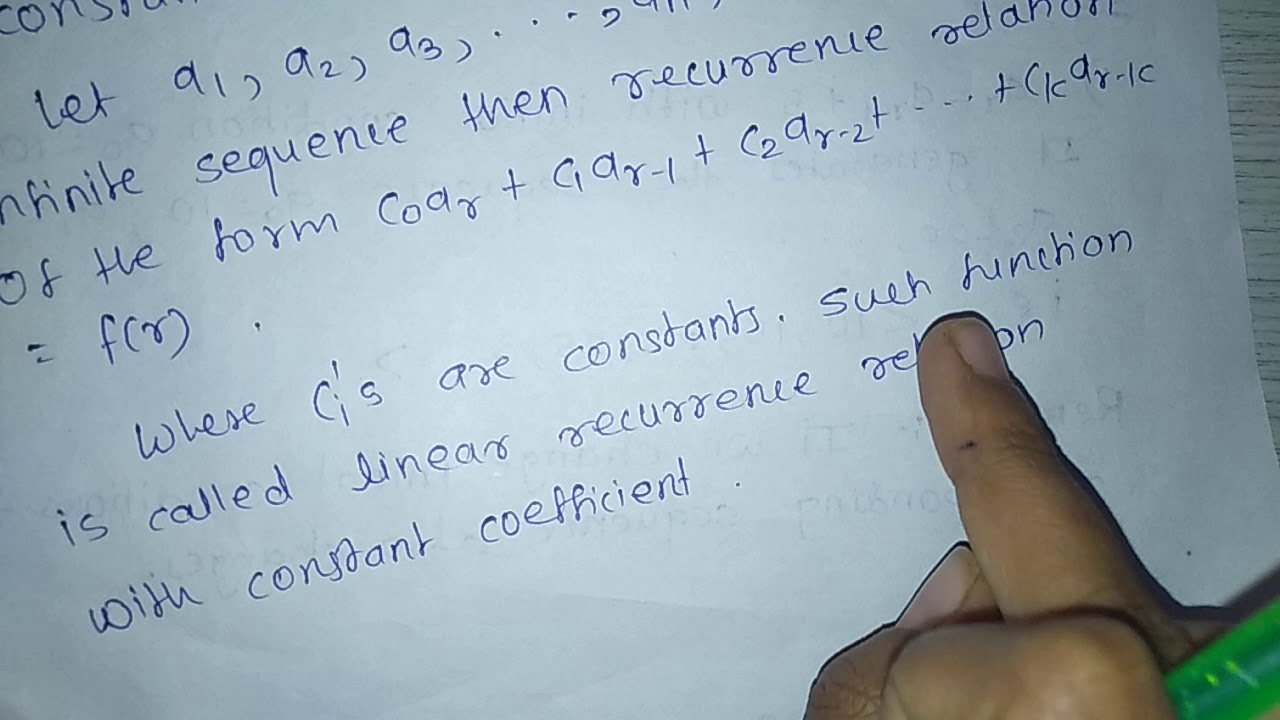 Let a1, a2, a3, . . . ,
infinite sequence then recurrence relation
of the form C0ar + C1ar-1 + C2ar-2 + - - .. + Ckar-k
= f(r) .
Where Ci's are constants. Such function
is called linear recurrence
with constant coefficient .